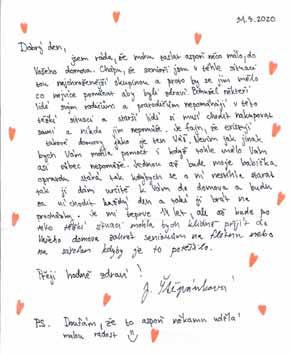 31.3.2020
Dobrý den,
jsem ráda, že mohu zaslat aspoň něco málo, do
Vašeho domova. Chápu, že senioři jsou v téhle situaci
tou nejohroženější skupinou a proto by se jim mělo
co nejvíce pomáhat aby byli zdraví. Bohužel někteří
lidé svým rodičům a prarodičům nepomáhají v této
těžké situaci a starší lidé si musí chodit nakupovat
sami a nikdo jim nepomůže. Je fajn, že existují
takové domovy jako je ten váš. Nevím jak jinak
bych Vám mohla pomoct i když tohle umělo Vám
asi vůbec nepomůže. Jednou až bude moje babička,
opravdu stará tak kdybych se o ni nemohla starat
tak ji dám určitě k Vám do domova a budu
za ní chodit každý den a také ji brát na
procházky. Je mi teprve 14 let, ale až bude po
této těžké situaci mohla bych klidně přijít do
Vašeho domova zahrát seniorům na flétnu nebo
na saxofon kdyby je to potěšilo.
Přeji hodně zdraví!
J. Štěpánková
P.S. Doufám, že to aspoň někomu udělá
malou radost